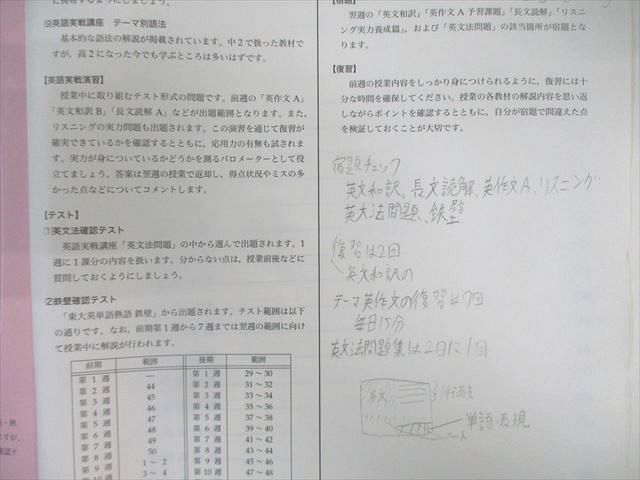 に携帯するようにしましょう。
⑼英語実戦講座 テーマ別語法
基本的な語法の解説が掲載されています。中2で扱った教材で
すが、高2になった今でも学ぶところは多いはずです。
【英語実戦演習】
授業中に取り組むテスト形式の問題です。前週の「英作文A」
「英文和訳B」「長文読解A」などが出題範囲となります。また、
リスニングの実力問題も出題されます。この演習を通じて復習が
確実できているかを確認するとともに、応用力の有無も試されま
す。実力が身についているかどうかを測るバロメーターとして役
立てましょう。答案は翌週の授業で返却し、得点状況やミスの多
かった点などについてコメントします。
【テスト】
⑴英文法確認テスト
英語実戦講座「英文法問題」の中から選んで出題されます。1
週に1課分の内容を扱います。分からない点は、授業前後などに
質問しておくようにしましょう。
⑵鉄壁確認テスト
「東大英単語熟語 鉄壁」から出題されます。テスト範囲は以下
の通りです。なお、前期第1週から7週までは翌週の範囲に向け
て授業中に解説が行われます。
前期 範囲 後期 範囲
第1週 ― 第1週 29～30
第2週 44 第2週 31～32
第3週 45 第3週 33～34
第4週 46 第4週 35～36
第5週 47 第5週 37～38
第6週 48 第6週 39～40
第7週 49 第7週 41～42
第8週 50 第8週 43～44
第9週 1～2 第9週 45～46
第10週 3～4 第10週 47～48
【宿題】
翌週の「英文和訳」「英作文A予習課題」「長文読解」「リスニ
ング実力養成篇」、および「英文法問題」の該当箇所が宿題とな
ります。
【復習】
前週の授業内容をしっかり身につけられるように、復習には十
分な時間を確保してください。授業の各教材の解説内容を思い返
しながらポイントを確認するとともに、自分が宿題で間違えた点
を検証しておくことが大切です。
宿題チェック
英文和訳、長文読解、英作文A、リスニング
英文法問題、鉄壁
復習は2回
英文和訳の
テーマ英作文の復習は7回
毎日15分
英文法問題集は2日に1回
英文
1行あき
単語・表現
ノート